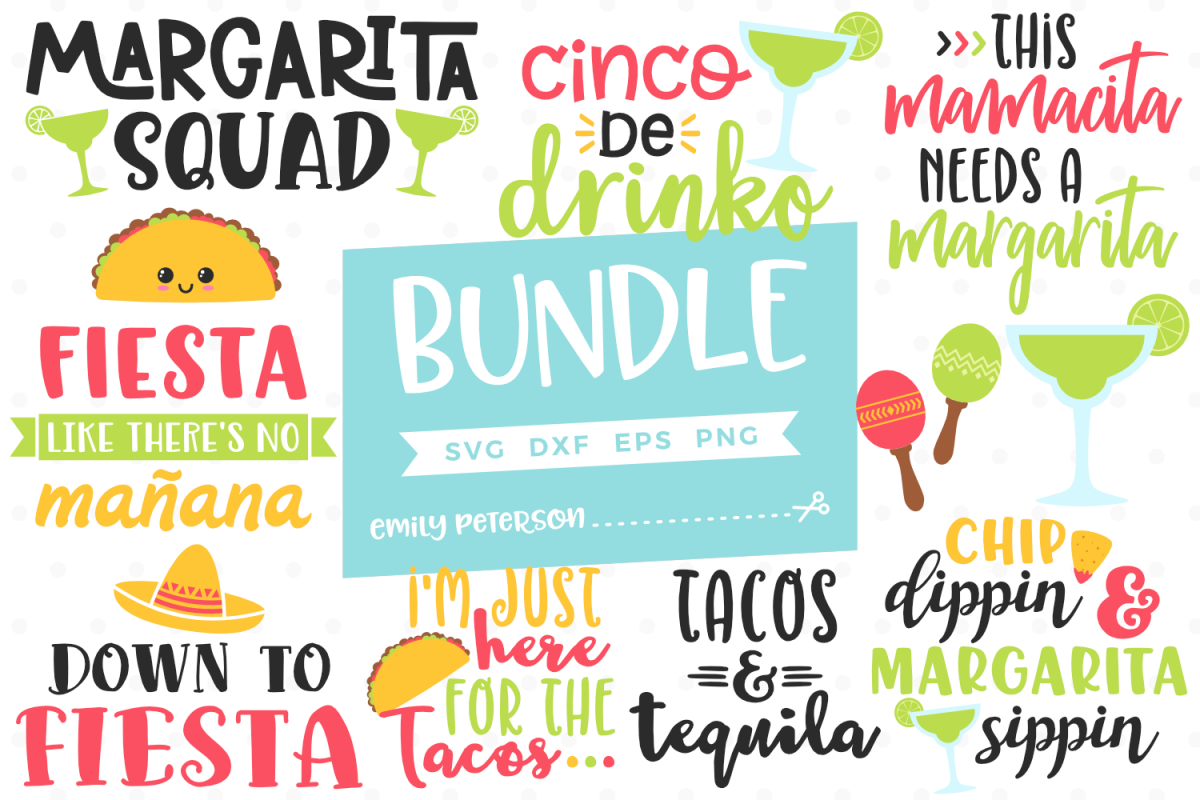 MARGARITA
SQUAD
cinco
DE
drinko
THIS
mamacita
NEEDS A
margarita
FIESTA
LIKE THERE'S NO
mañana
BUNDLE
SVG DXF EPS PNG
EMILY PETERSON
DOWN TO
FIESTA
I'M JUST
here
FOR THE
Tacos...
TACOS
&
tequila
CHIP
dippin &
MARGARITA
sippin